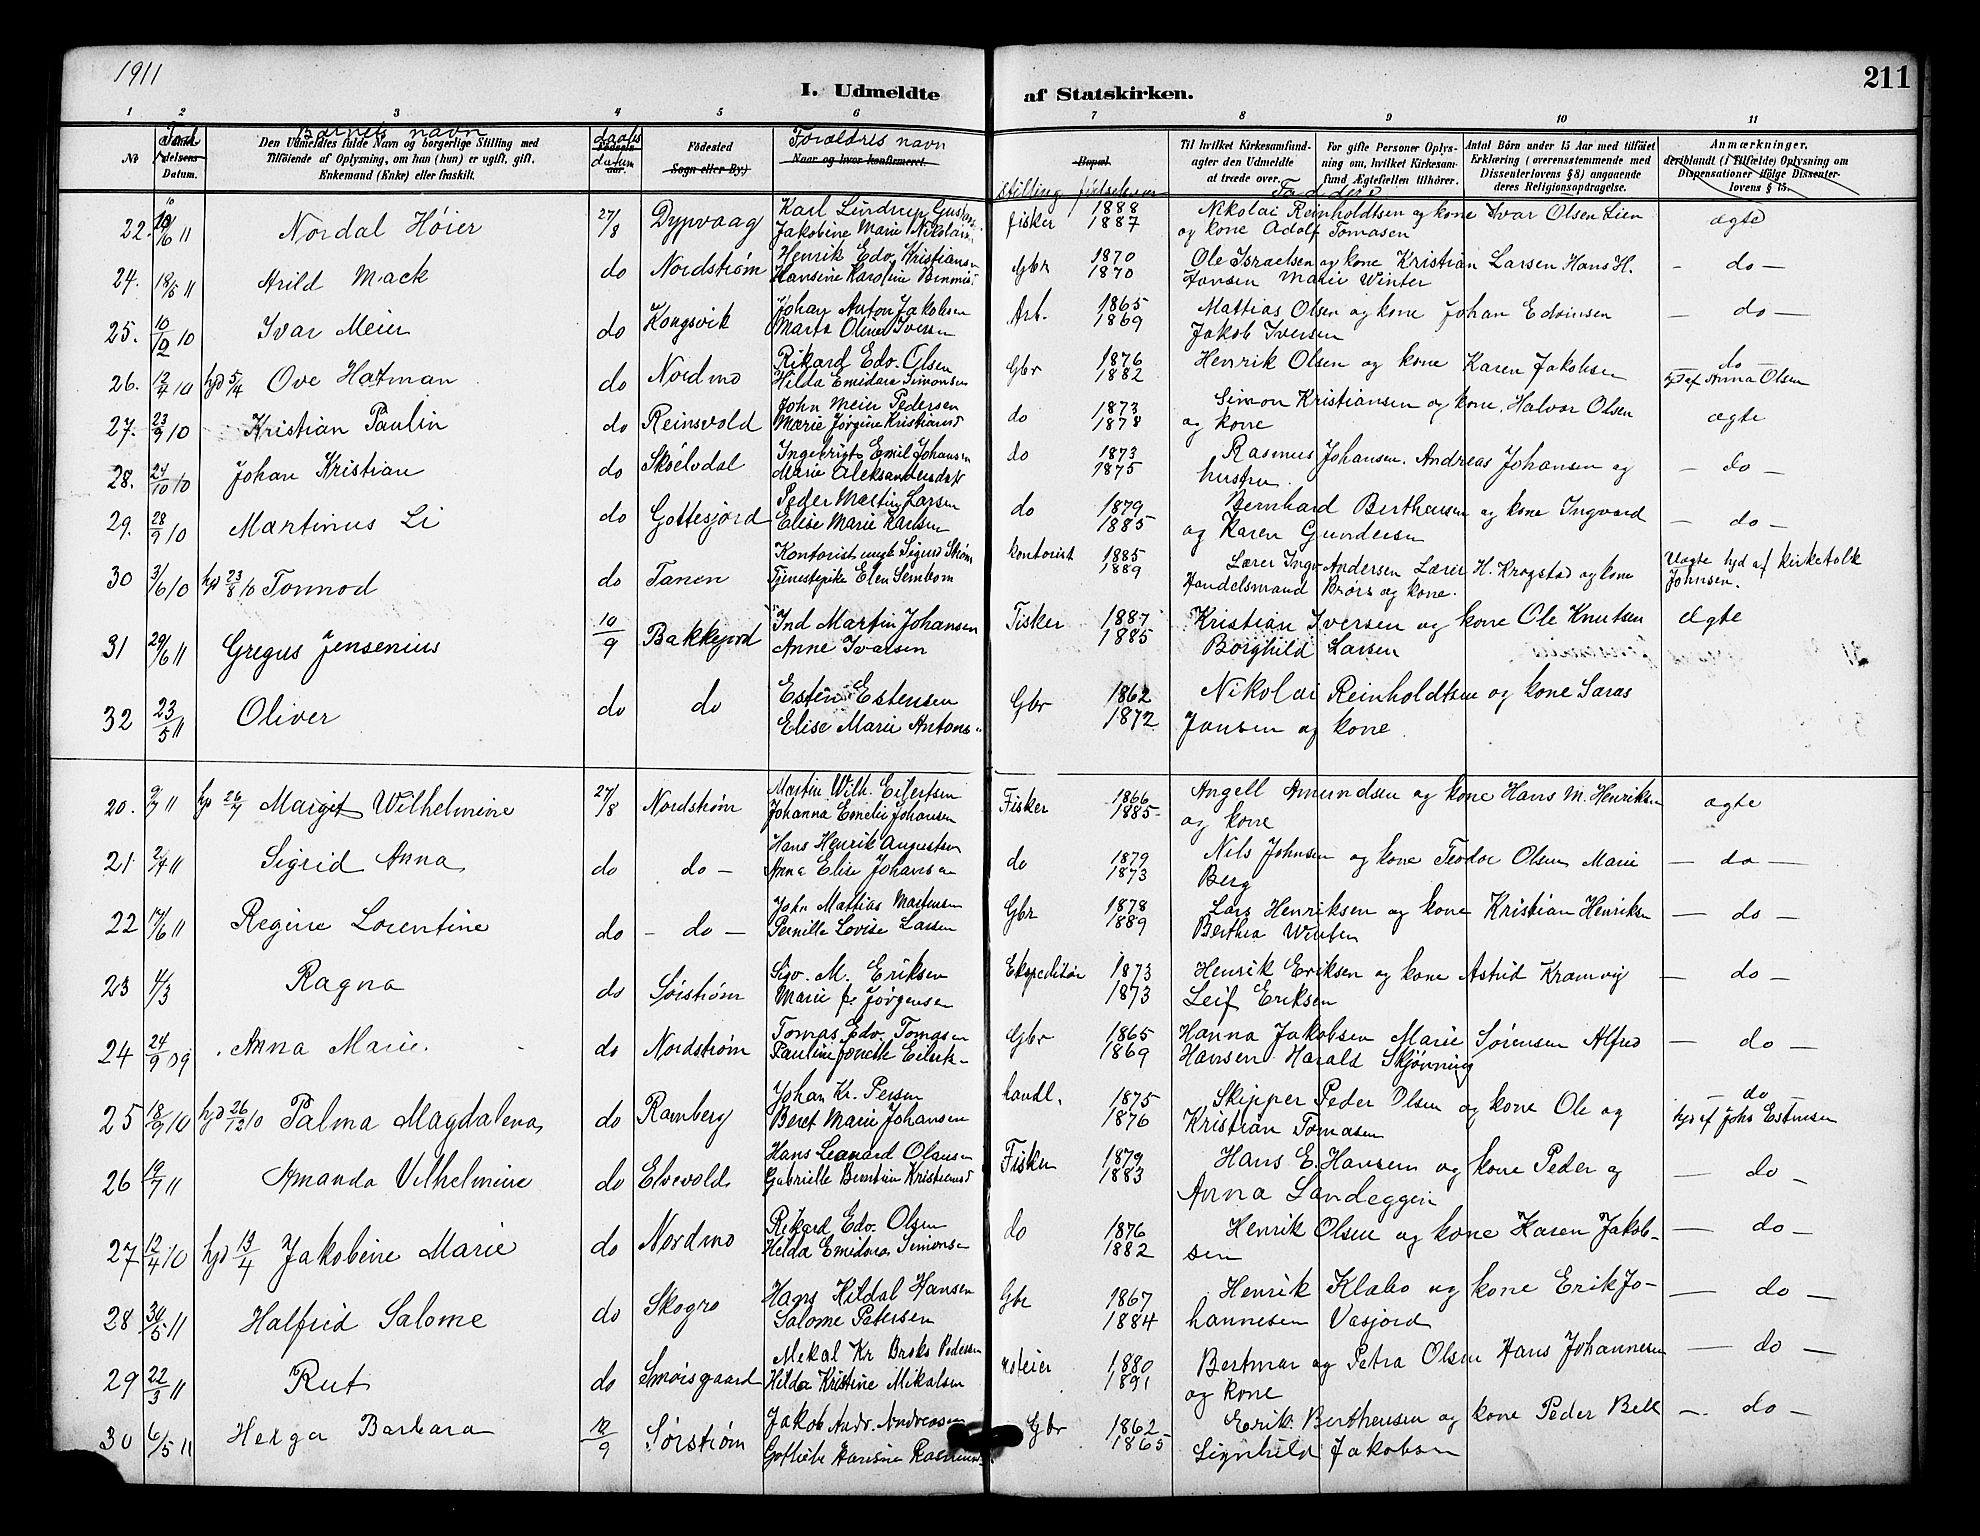 1911
211
I. Udmeldte af Statskirken.
1 2 3 4 5 6 7 8 9 10 11
Barnets navn
daabs datum
Forældres navn
stilling fødselsaar
Fadderes
No
Datum.
Den Udmeldtes fulde Navn og borgerlige Stilling med
Tilføiende af Oplysning, om han (hun) er ugift, gift,
Enkemand (Enke) eller fraskilt.
Fødested
Sogn eller By.)
Naar og hvor konfirmeret.
Bopæl
Til hvilket Kirkesamfund-
agter den Udmeldte
at træde over.
For gifte Personer Oplys-
ning om, hvilket Kirkesam-
fund Ægtefællen tilhører.
Antal Børn under 15 Aar med tilføiet
Erklæring (overensstemmende med
Dissenterlovens § 8) angaaende
deres Religionsopdragelse.
Anmærkninger,
deriblandt (i Tilfælde) Oplysning om
Dispensationer ifølge Dissenter-
lovens § 15.
22. Nordal Høier 27/8 Dypvaag Karl Lindrup
Jakobine Marie Nikolais. fisker 1888 1887 Nikolai Reinholdtsen og kone Ivar Olsen Lien
og kone Adolf Tomasen ægte
24. 18/5 11 Arild Mack do Nordstrøm Henrik Edv. Kristiansen
Hansine Karoline Gbr 1870 1870 Ole Israelsen og kone Kristian Larsen Hans H.
Jansen Marie Winter - do -
25. 10/12 10 Ivar Meier do Kongsvik Johan Anton Jakobsen
Marta Oline Iversen Arb. 1865 1869 Mattias Olsen og kone Johan Edvinsen
Jakob Iversen - do -
26. 12/4 10 hjd 5/4 Ove Hatman do Nordmo Rikard Edv. Olsen
Hilda Emidara Simonsen Gbr 1876 1882 Henrik Olsen og kone Karen Jakobsen do
hjd af Anna Olsen
27. 23/9 10 Kristian Paulin do Reinsvold John Meier Pedersen
Marie Jørgine Kristiansd do 1873 1878 Simon Kristiansen og kone, Halvor Olsen
og kone ægte
28. 24/10 10 Johan Kristian do Ingebrigt Emil Johansen
Marie Aleksandersdatr do 1873 1875 Rasmus Johansen. Andreas Johansen og
hustru - do -
29. 28/9 10 Martinus Li do Gottesjord Peder Martin Larsen
Elise Marie Karlsen do 1879 1885 Bernhard Bertheusen og kone Ingvard
og Karen Gundersen - do -
30 3/6 10 hjd 23/8 10 Tormod do Tanen Kontorist ungk Sigurd Strøm
Tjenestepike Elen Sembom kontorist 1885 1889 Lærer Ingv. Andersen Lærer H. Krogstad og kone
Handelsmand Brørs og kone. Uægte hjd af kirketolk
Johnsen.
31 29/6 11 Gregus Jensenius 10/9 Bakkejord Ind Martin Johansen
Anne Ivarsen Fisker 1887 1885 Kristian Iversen og kone Ole Knutsen
Borghild Larsen ægte
32 23/5 11 Oliver do do Esten Estensen
Elise Marie Antons. Gbr 1862 1872 Nikolai Reinholdtsen og kone Saras
Jansen og kone.
20. 9/7 11 hjd 26/7 Margit Wilhelmine 27/8 Nordstrøm Martin Wilh. Eilertsen
Johanna Emelie Johansen Fisker 1866 1885 Angell Amundsen og kone Hans M. Henriksen
og kone ægte
21 2/4 11 Sigrid Anna do do - Hans Henrik Augustsen
Anna Elise Johansen do 1879 1873 Nils Johnsen og kone Teodor Olsen Marie
Berg - do -
22 17/6 11 Regine Lorentine do - do - John Mattias Martinsen
Pernille Lovise Larsen Gbr 1878 1889 Lars Henriksen og kone Kristian Henriksen
Berthea Winten - do -
23 4/3 Ragna do Sørstrøm Sigv. M. Eriksen
Marie f. Jørgensen Ekspeditør 1873 1873 Henrik Eriksen og kone Astrid Kramvig
Leif Eriksen - do -
24 24/9 09 Anna Marie. do Nordstrøm Tomas Edv. Tomasen
Pauline Jonette Eilerts- Gbr 1865 1869 Hanna Jakobsen Marie Sørensen Alfred
Hansen Harald Skjønning - do -
25 18/9 10 hjd 26/12 10 Palma Magdalena do Ramberg Johan Kr. Persen
Beret Marie Johansen handl. 1875 1876 Skipper Peder Olsen og kone Ole og
Kristian Tomasen - do -
hjd af Johs Estensen
26 19/7 11 Amanda Vilhelmine do Elvevold Hans Leonard Olausen
Gabrielle Berntine Kristiansd Fisker 1879 1883 Hans E. Hansen og kone Peder og
Anna Landeggen - do -
27 12/4 10 hjd 13/4 Jakobine Marie do Nordmo Rikard Edv. Olsen
Hilda Emidora Simonsen do 1876 1882 Henrik Olsen og kone Karen Jakob-
sen - do -
28 30/5 11 Halfrid Salome do Skogro Hans Hildal Hansen
Salome Petersen Gbr 1867 1884 Henrik Klabo og kone Erik Jo-
hannesen Vasjord - do -
29 22/3 11 Rut do Smørsgaard Mekal Kr Broks Pedersen
Hilda Kristine Mikalsen 1880 1891 Bertmar og Petra Olsen Hans Johannesen
og kone - do -
30 6/5 11 Helga Barbara 10/9 Sørstrøm Jakob Andr. Andreasen
Gotliebe Hansine Gbr 1862 1865 Erik Berthensen og kone Peder Bell
Signhild Jakobsen - do -